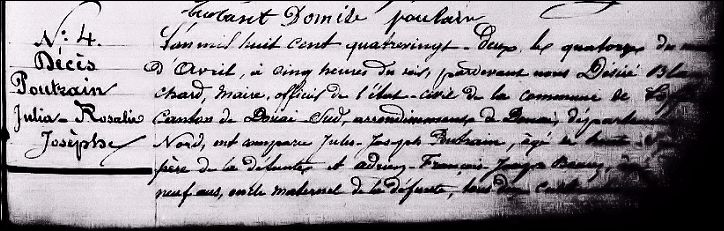 Domile poulain
N° 4.
Décès
Poutrain
Julia-Rosalie
Josèphe
L'an mil huit cent quatrevingt-deux, le quatorze du
d'Avril, à cinq heures du soir, pardevant nous Désiré Blan
chard, maire, officier de l'état-civil de la commune de
Canton de Douai-Sud, arrondissement de Douai, départe
Nord, ont comparu Jules-Joseph Poutrain, âgé de
père de la défunte et François-Joseph
neuf ans, oncle maternel de la défunte, tous deux